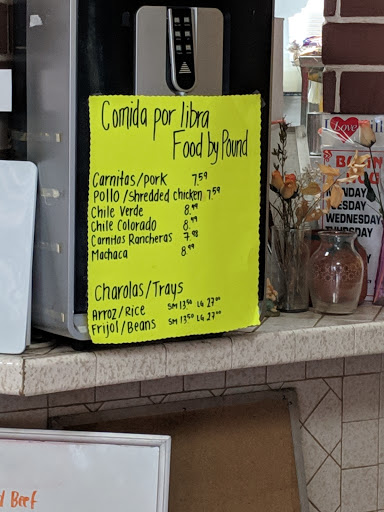 Comida por libra
Food by Pound
Carnitas/pork 7.59
Pollo/shredded chicken 7.59
Chile Verde 8.99
Chile Colorado 8.99
Carnitas Rancheras 7.98
Machaca 8.99
Charolas/Trays
Arroz/Rice SM 13.50 LG 27.00
Frijol/Beans SM 13.50 LG 27.00
Love
WEDNESDAY
Beef